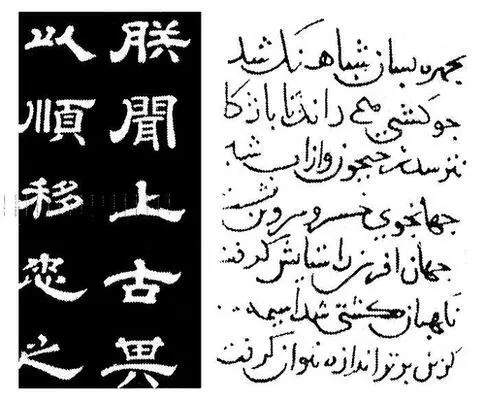 朕聞上古其
以順移忠之
بچهره بسان شباهنگ شد
جو کشتی همی راند تا باژکا
نترسد ز جیحون و از آب شاه
جهانجوی خسرو سر و تن
جهان آفرین را ستایش گرفت
کشتی شد آسیمه
کزین برتر اندازه نتوان گرفت